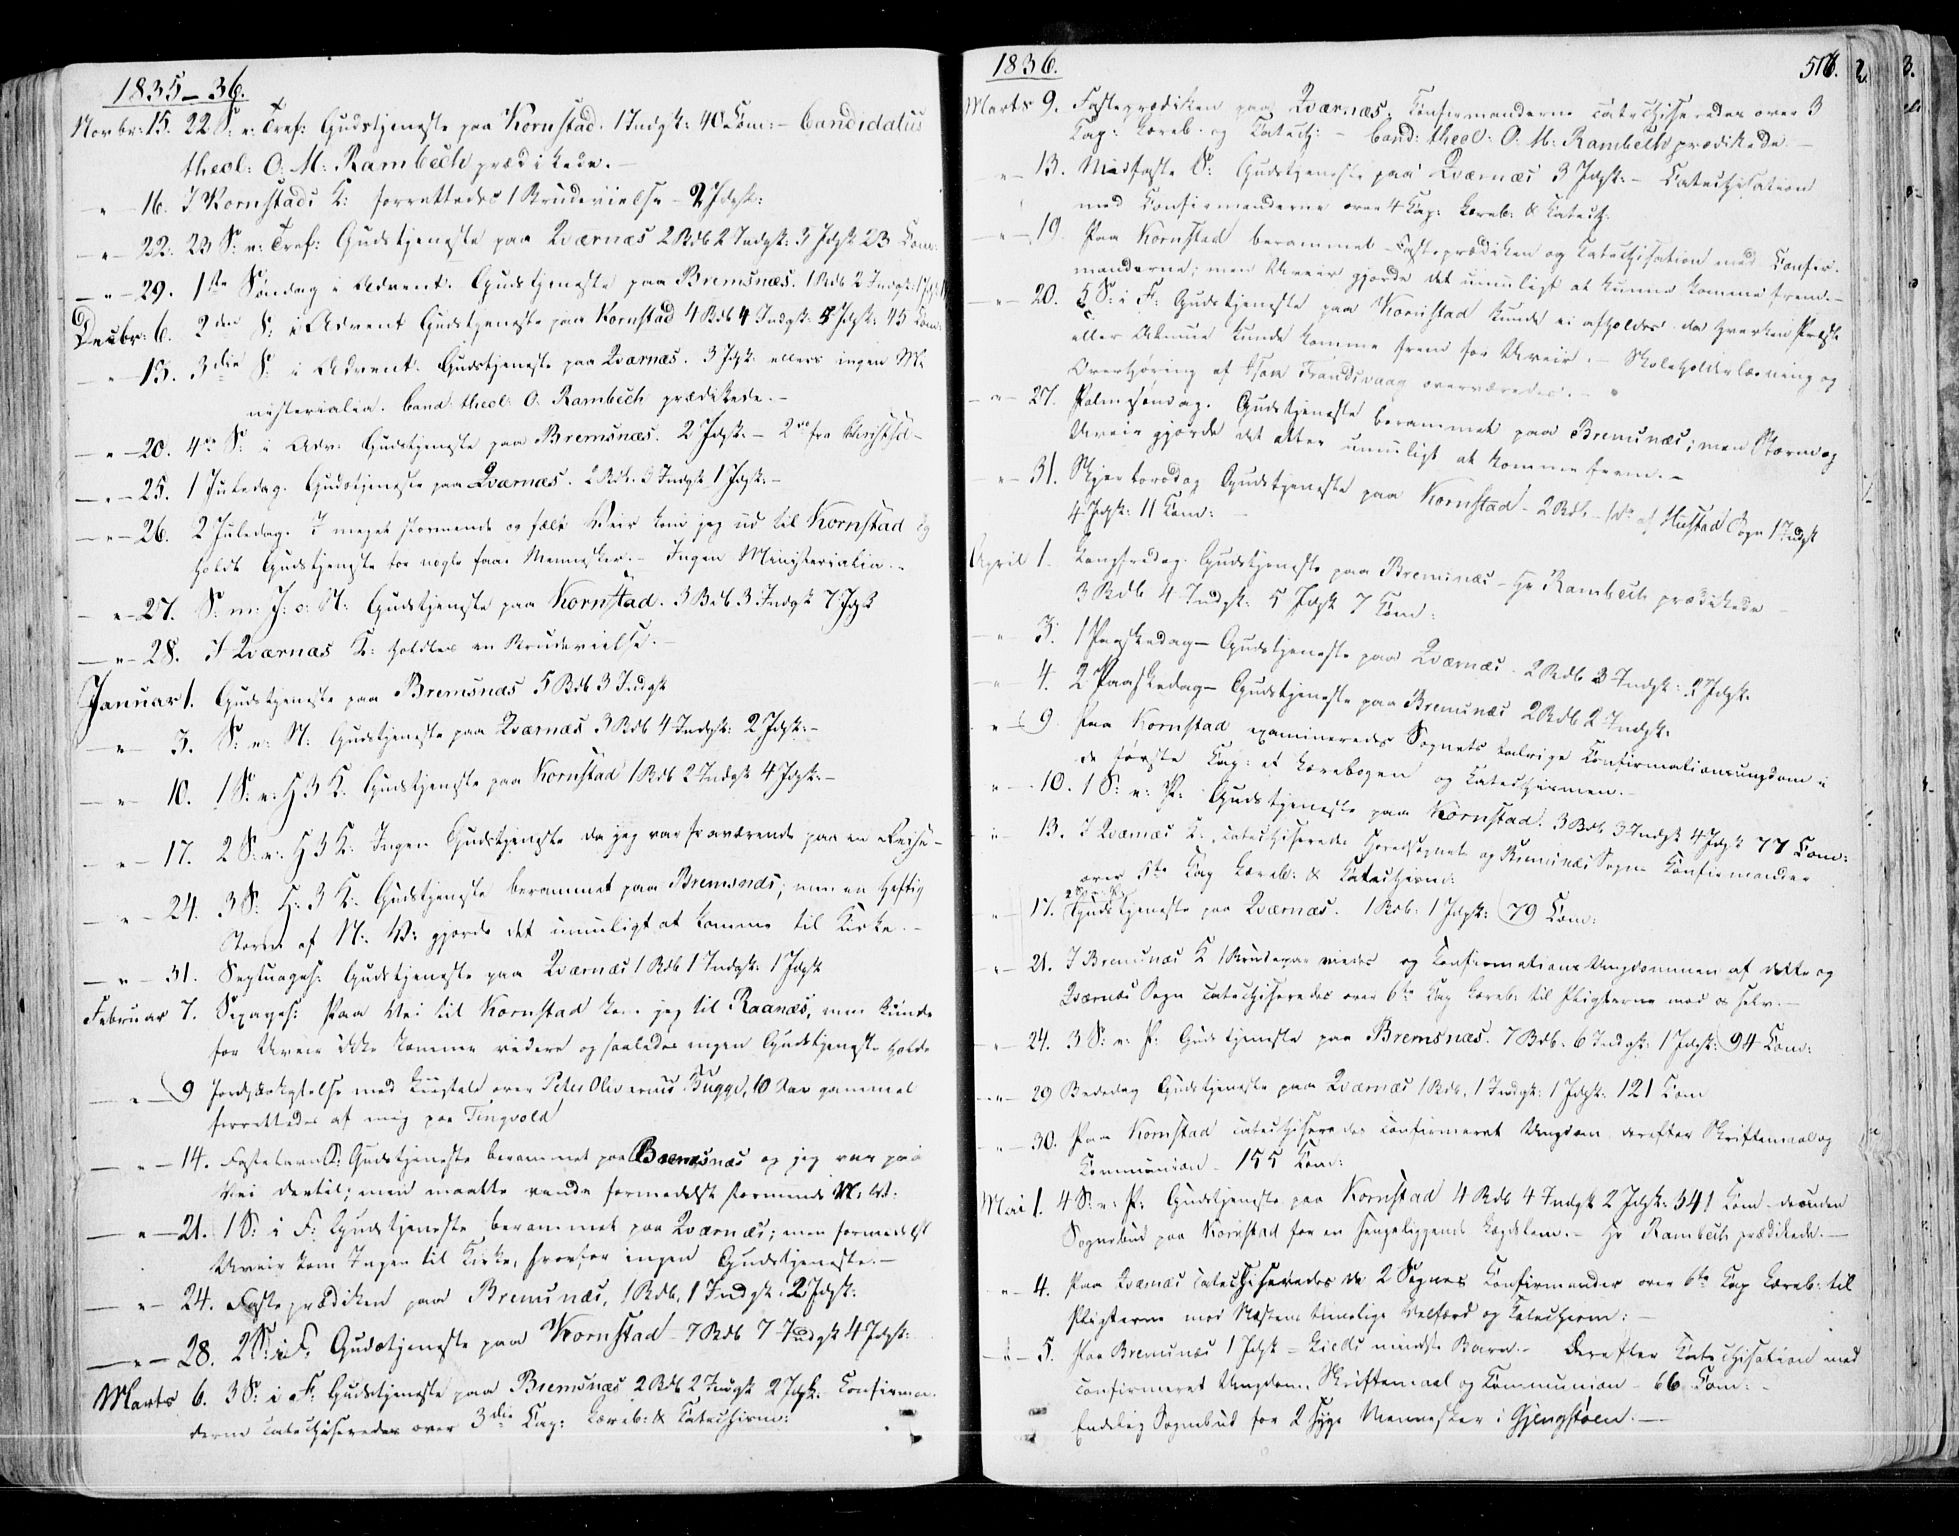 1835-36.
Novbr: 15. 22 S: e: Tref: Gudstjeneste paa Kornstad. 1 Indgk: 40 Com: - Candidatus
theol: O: M: Rambech prædikede. -
" - 16. I Kornstads K: forrettedes 1 Brudevielse - 2 Jdgk:
" - 22. 23 S: e: Tref: Gudstjeneste paa Qværnæs 2 Rdb 2 Indgk: 3 Jdgk 23 Com:
" - 29. 1ste Søndag i Advent. Gudstjeneste paa Bremsnæs. 1 Rdb 2 Indgk: 1 Jdgk
Decbr: 6. 2den S: i Advent Gudstjeneste paa Kornstad 4 Rdb 4 Indgk: 5 Jdgk: 45 Com:
" - 13. 3die S: i Advent. Gudstjeneste paa Qværnæs. 3 Jdgk: ellers ingen Mi-
nisterialia. Cand: theol: O. Rambech prædikede. -
" - 20. 4de S: i Adv: Gudstjeneste paa Bremsnæs. 2 Jdgk: -
" - 25. 1 Juledag. Gudstjeneste paa Qværnæs. 2 Rdb. 3 Indgk 1 Jdgk: -
" - 26. 2 Juledag. I meget stormende og fælt Veir kom jeg ud til Kornstad og
holdt Gudstjeneste for nogle faae Mennesker. - Ingen Ministerialia. -
" - 27. S: m: J: o: N: Gudstjeneste paa Kornstad. 3 Rdb 3 Indgk 7 Jdgk
" - 28. I Qværnæs K: holdtes en Brudevielse. -
Januar 1. Gudstjeneste paa Bremsnæs 5 Rdb 3 Indgk
" - 3. S: e: N: Gudstjeneste paa Qværnæs 3 Rdb 4 Indgk: 2 Jdgk: -
" - 10. 1 S: e: H 3 K. Gudstjeneste paa Kornstad 1 Rdb 2 Indgk 4 Jdgk: -
" - 17. 2 S: e: H 3 K: Ingen Gudstjeneste da jeg var fraværende paa en Reise -
" - 24. 3 S: H: 3 K: Gudstjeneste berammet paa Bremsnæs; men en heftig
Storm af N: V: gjorde det umuligt at komme til Kirke. -
" - 31. Septuages: Gudstjeneste paa Qværnæs 1 Rdb 1 Indgk: 1 Jdgk
Februar 7. Sexages: Paa Vei til Kornstad kom jeg til Raanæs, men kunde
for Uveir ikke komme videre og saaledes ingen Gudstjeneste holde
" - 9 Jordpaakastelse med Liigtale over Peter Oliverius Bugge, 10 Dav gammel
forrettedes af mig paa Tingvold
" - 14. Fastelavns S: Gudstjeneste berammet paa Bremsnæs og jeg var paa
Vei dertil; men maatte vende formedelst stormende N. V.
" - 21. 1 S: i F: Gudstjeneste berammet paa Qværnæs; men formedelst
Uveir kom Ingen til Kirke, hvorfor ingen Gudstjeneste. -
" - 24. Fasteprædiken paa Bremsnæs, 1 Rdb. 1 Indgk. 2 Jdgk:
" - 28. 2 S: i F. Gudstjeneste paa Kornstad - 7 Rdb 7 Indgk 4 Jdgk:
Marts 6. 3 S: i F. Gudstjeneste paa Bremsnæs 2 Rdb 2 Indgk 2 Jdgk - Confirman-
derne catechiseredes over 3die Cap: Læreb: & Catechism:
1836. 516.
Marts 9. Fasteprædiken paa Qværnæs. Confirmanderne catechiseredes over 3
Cap: Læreb. og Catech: - Cand: theol: O: M: Rambech prædikede. -
" - 13. Midfaste S: Gudstjeneste paa Qværnæs 3 Jdgk: - Catechisation
med Confirmanderne over 4 Cap: Læreb: & Catech.
" - 19. Paa Kornstad berammet Fasteprædiken og Catechisation med Confir-
manderne; men Uveir gjorde det umuligt at kunne komme frem. -
" - 20. 5 S: i F: Gudstjeneste paa Kornstad kunde ei afholdes da hverken Præst
eller Almue kunde komme frem for Uveir. - Skoleholderlæsning og
Overhøring af overværedes. -
" - 27. Palmesøndag. Gudstjeneste berammet paa Bremsnæs; men Storm og
Uveir gjorde det atter umuligt at komme frem. -
" - 31. Skjertorsdag Gudstjeneste paa Kornstad - 2 Rdb - af Hustad Sogn 1 Indgk
4 Jdgk: 11 Com: -
April 1. Langfredag. Gudstjeneste paa Bremsnæs - Hr Rambech prædikede
3 Rdb 4 Indgk: 5 Jdgk 7 Com:
" - 3. 1 Paaskedag - Gudstjeneste paa Qværnæs. 2 Rdb 3 Indgk: 2 Jdgk.
" - 4. 2 Paaskedag - Gudstjeneste paa Bremsnæs 2 Rdb 2 Indgk.
" - 9. Paa Kornstad examineredes Sognets talrige Confirmationsungdom i
de første Cap: af Lærebogen og Catechismen. -
" - 10. 1 S: e: P: Gudstjeneste paa Kornstad. 3 Rdb 3 Indgk 4 Jdgk 77 Com:
" - 13. I Qværnæs K. catechiseredes Hovedsognets og Bremsnæs Sogns Confirmander
over 5te Cap Læreb: & Catechism:
" - 17. Gudstjeneste paa Qværnæs. 1 Rdb: 1 Jdgk: 79 Com:
" - 21. I Bremsnæs K 1 Brudepar viedes og Confirmations Ungdommen af dette og
Qværnæs Sogn catechiseredes over 6te Cap Læreb: til Pligterne mod os selv. -
" - 24. 3 S: e: P: Gudstjeneste paa Bremsnæs. 7 Rdb. 6 Indgk: 1 Jdgk: 94 Com:
" - 29 Bededag Gudstjeneste paa Qværnæs 1 Rdb, 1 Indgk: 1 Jdgk: 121 Com
" - 30. Paa Kornstad catechiseredes confirmeret Ungdom derefter Skriftemaal og
Communion - 155 Com:
Mai 1. 4 S: e: P: Gudstjeneste paa Kornstad 4 Rdb 4 Indgk 2 Jdgk: 341 Com - desuden
Sognebud paa Kornstad for en sengeliggende Lægdslem. - Hr Rambech prædikede. -
" - 4. Paa Qværnæs catechiseredes de 2 Sognes Confirmander over 6te Cap Læreb: til
Pligterne mod Næstens timelige Velfærd og Catechism: -
" - 5. Paa Bremsnæs 1 Jdgk - mindste Barn. - Derefter Catechisation med
confirmeret Ungdom, Skriftemaal og Communion - 66 Com: -
Endelig Sognebud for 2 syge Mennesker i Gjengstøen. -